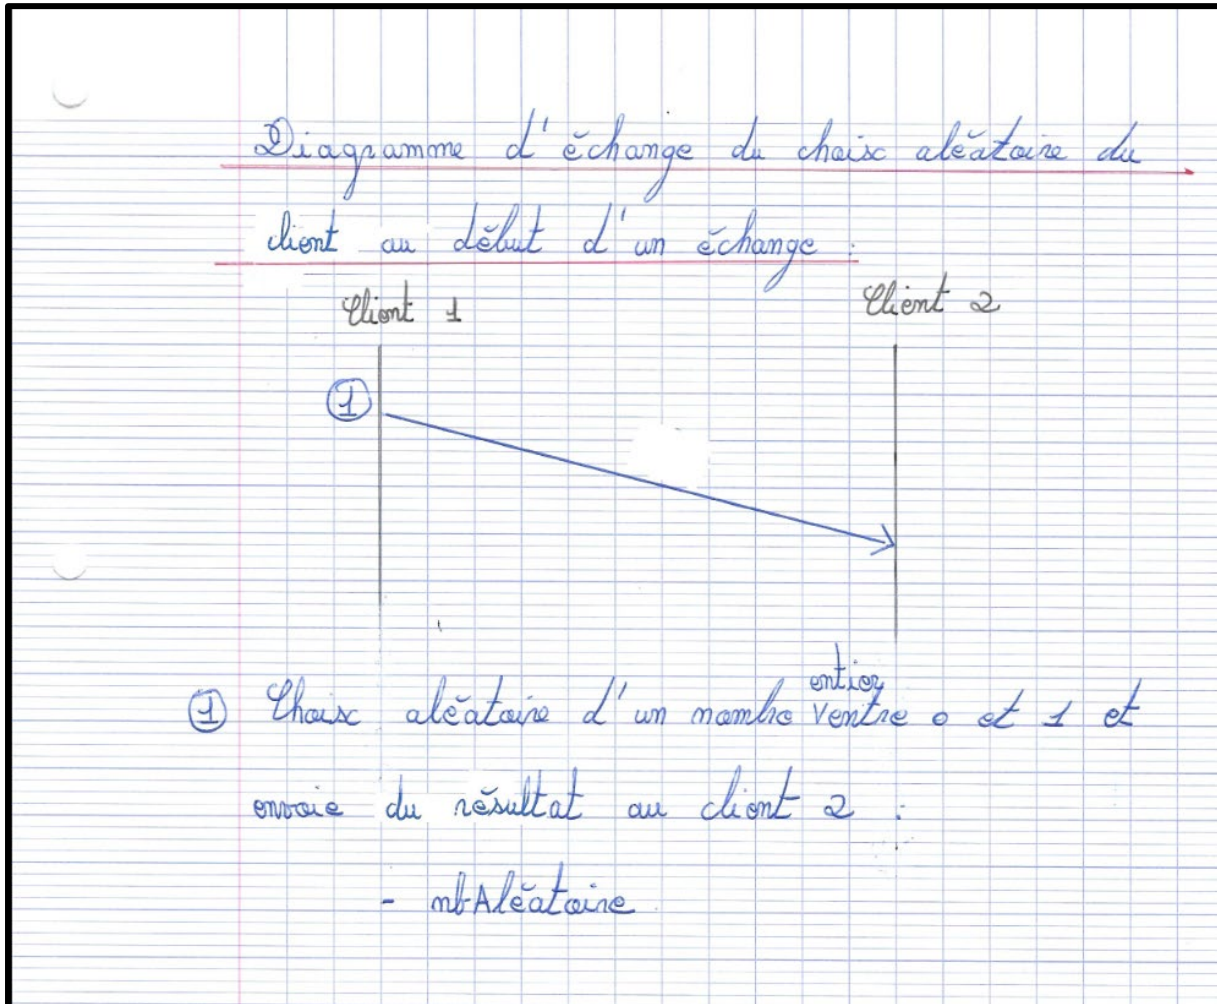 Diagramme d'échange du choix aléatoire du
client au début d'un échange :
Client 1 Client 2
1
1 Choix aléatoire d'un nombre entier entre 0 et 1 et
envoie du résultat au client 2 :
- nbAléatoire